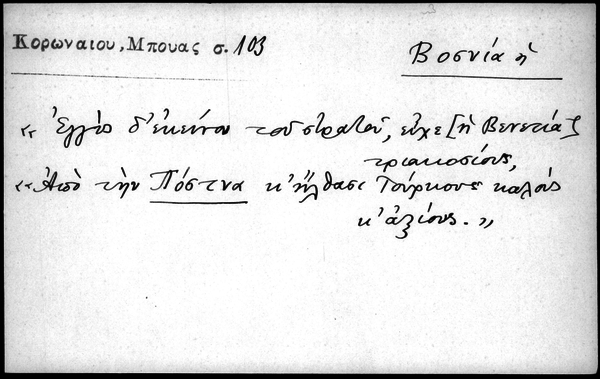 Κορωναιου, Μπουας σ. 103
Βοσνία ἡ
«Ἐγγὺς δ' ἐκείνου τοῦ στρατοῦ, εἶχε [ἡ Βενετία]
τριακοσίους,
«Ἀπὸ τὴν Πόστνα κ' ἤλθασι Τούρκους καλοὺς
κ' ἀξίους.»